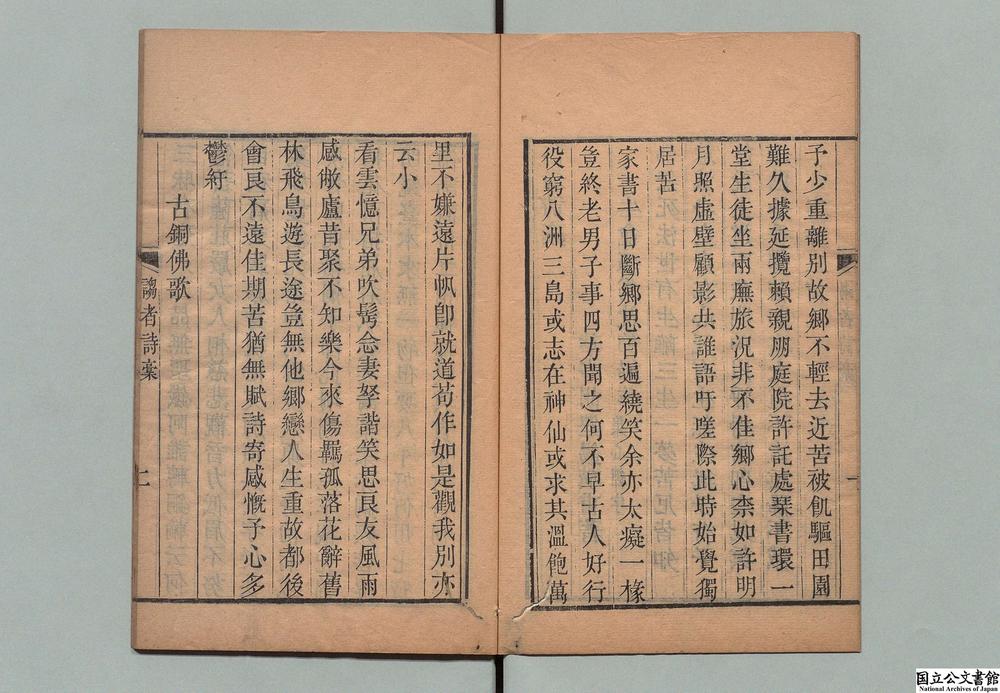 予少重離別故鄉不輕去近苦被飢驅田園
難久據延攬賴親朋庭院許託處琹書環一
堂生徒坐兩廡旅況非不佳鄉心柰如許明
月照虛壁顧影共誰語吁嗟際此時始覺獨
居苦
家書十日斷鄉思百遍繞笑余亦太癡一椽
豈終老男子事四方聞之何不早古人好行
役窮八洲三島或志在神仙或求其溫飽萬
里不嫌遠片帆卽就道苟作如是觀我別亦
云小
看雲憶兄弟吹髩念妻孥諧笑思良友風雨
感敝廬昔聚不知樂今來傷羈孤落花辭舊
林飛鳥遊長途豈無他鄉戀人生重故都後
會良不遠佳期苦猶無賦詩寄感慨予心多
鬱紆
古銅佛歌
謅者詩稾
上
一
国立公文書館
National Archives of Japan